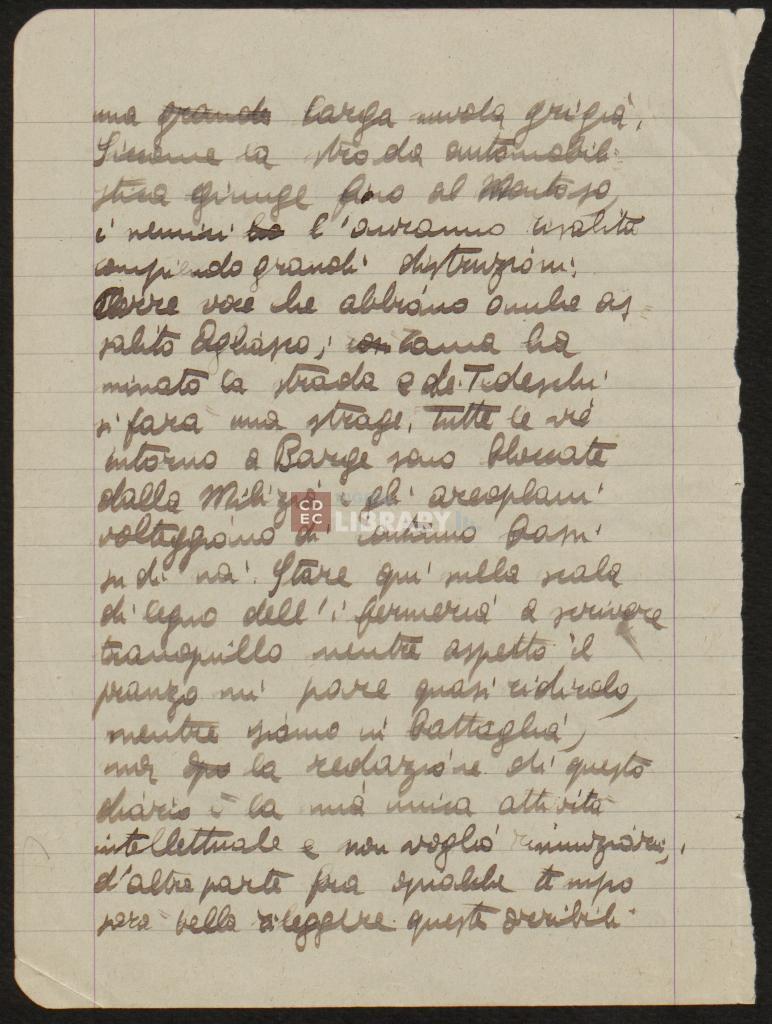 una grande larga nuvola grigia.
Siccome la strada automobili-
stica giunge fino al Montoso,
i nemici l'avranno risalita
compiendo grandi distruzioni.
Corre voce che abbiano anche as=
salito Agliasco, ma ha
minato la strada e dei Tedeschi
si farà una strage. Tutte le vie
intorno a Barge sono bloccate
dalla Milizia e gli areoplani
volteggiano di continuo bassi
su di noi. Stare qui sulla scala
di legno dell'infermeria a scrivere
tranquillo mentre aspetto il
pranzo mi pare quasi ridicolo,
mentre siamo in battaglia,
ma la redazione di questo
diario è la mia unica attività
intellettuale e non voglio rinunziarvi,
d'altra parte fra qualche tempo
sarà bello rileggere queste orribili
CDEC
DIGITAL
LIBRARY.it